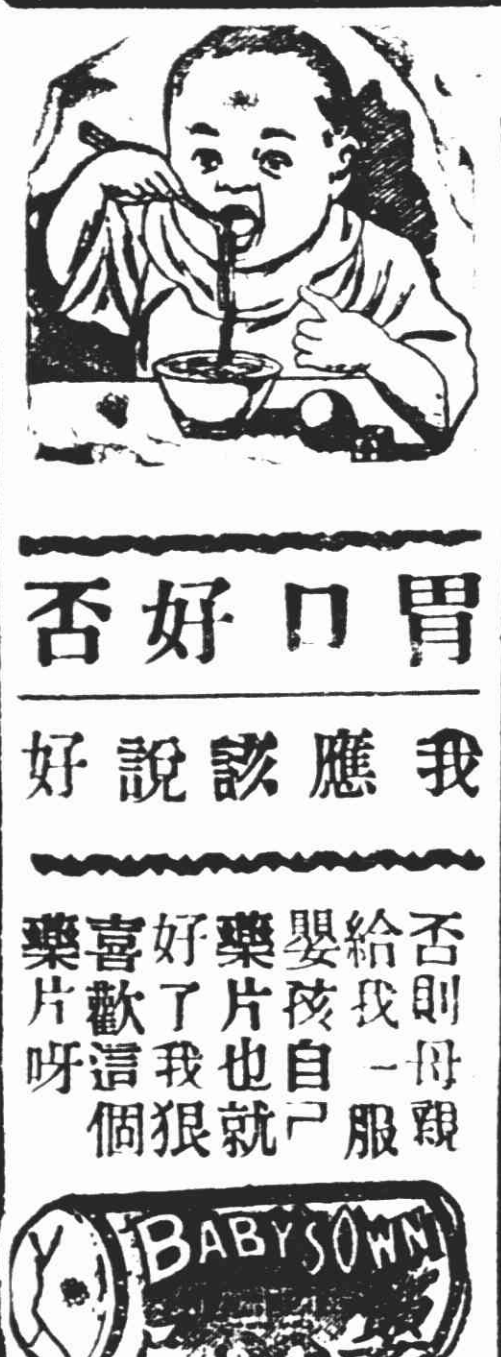 胃口好否
我應該說好
否則母親
給我一服
嬰孩自己
藥片也就
好了我狠
喜歡這個
藥片呀
BABY'S OWN